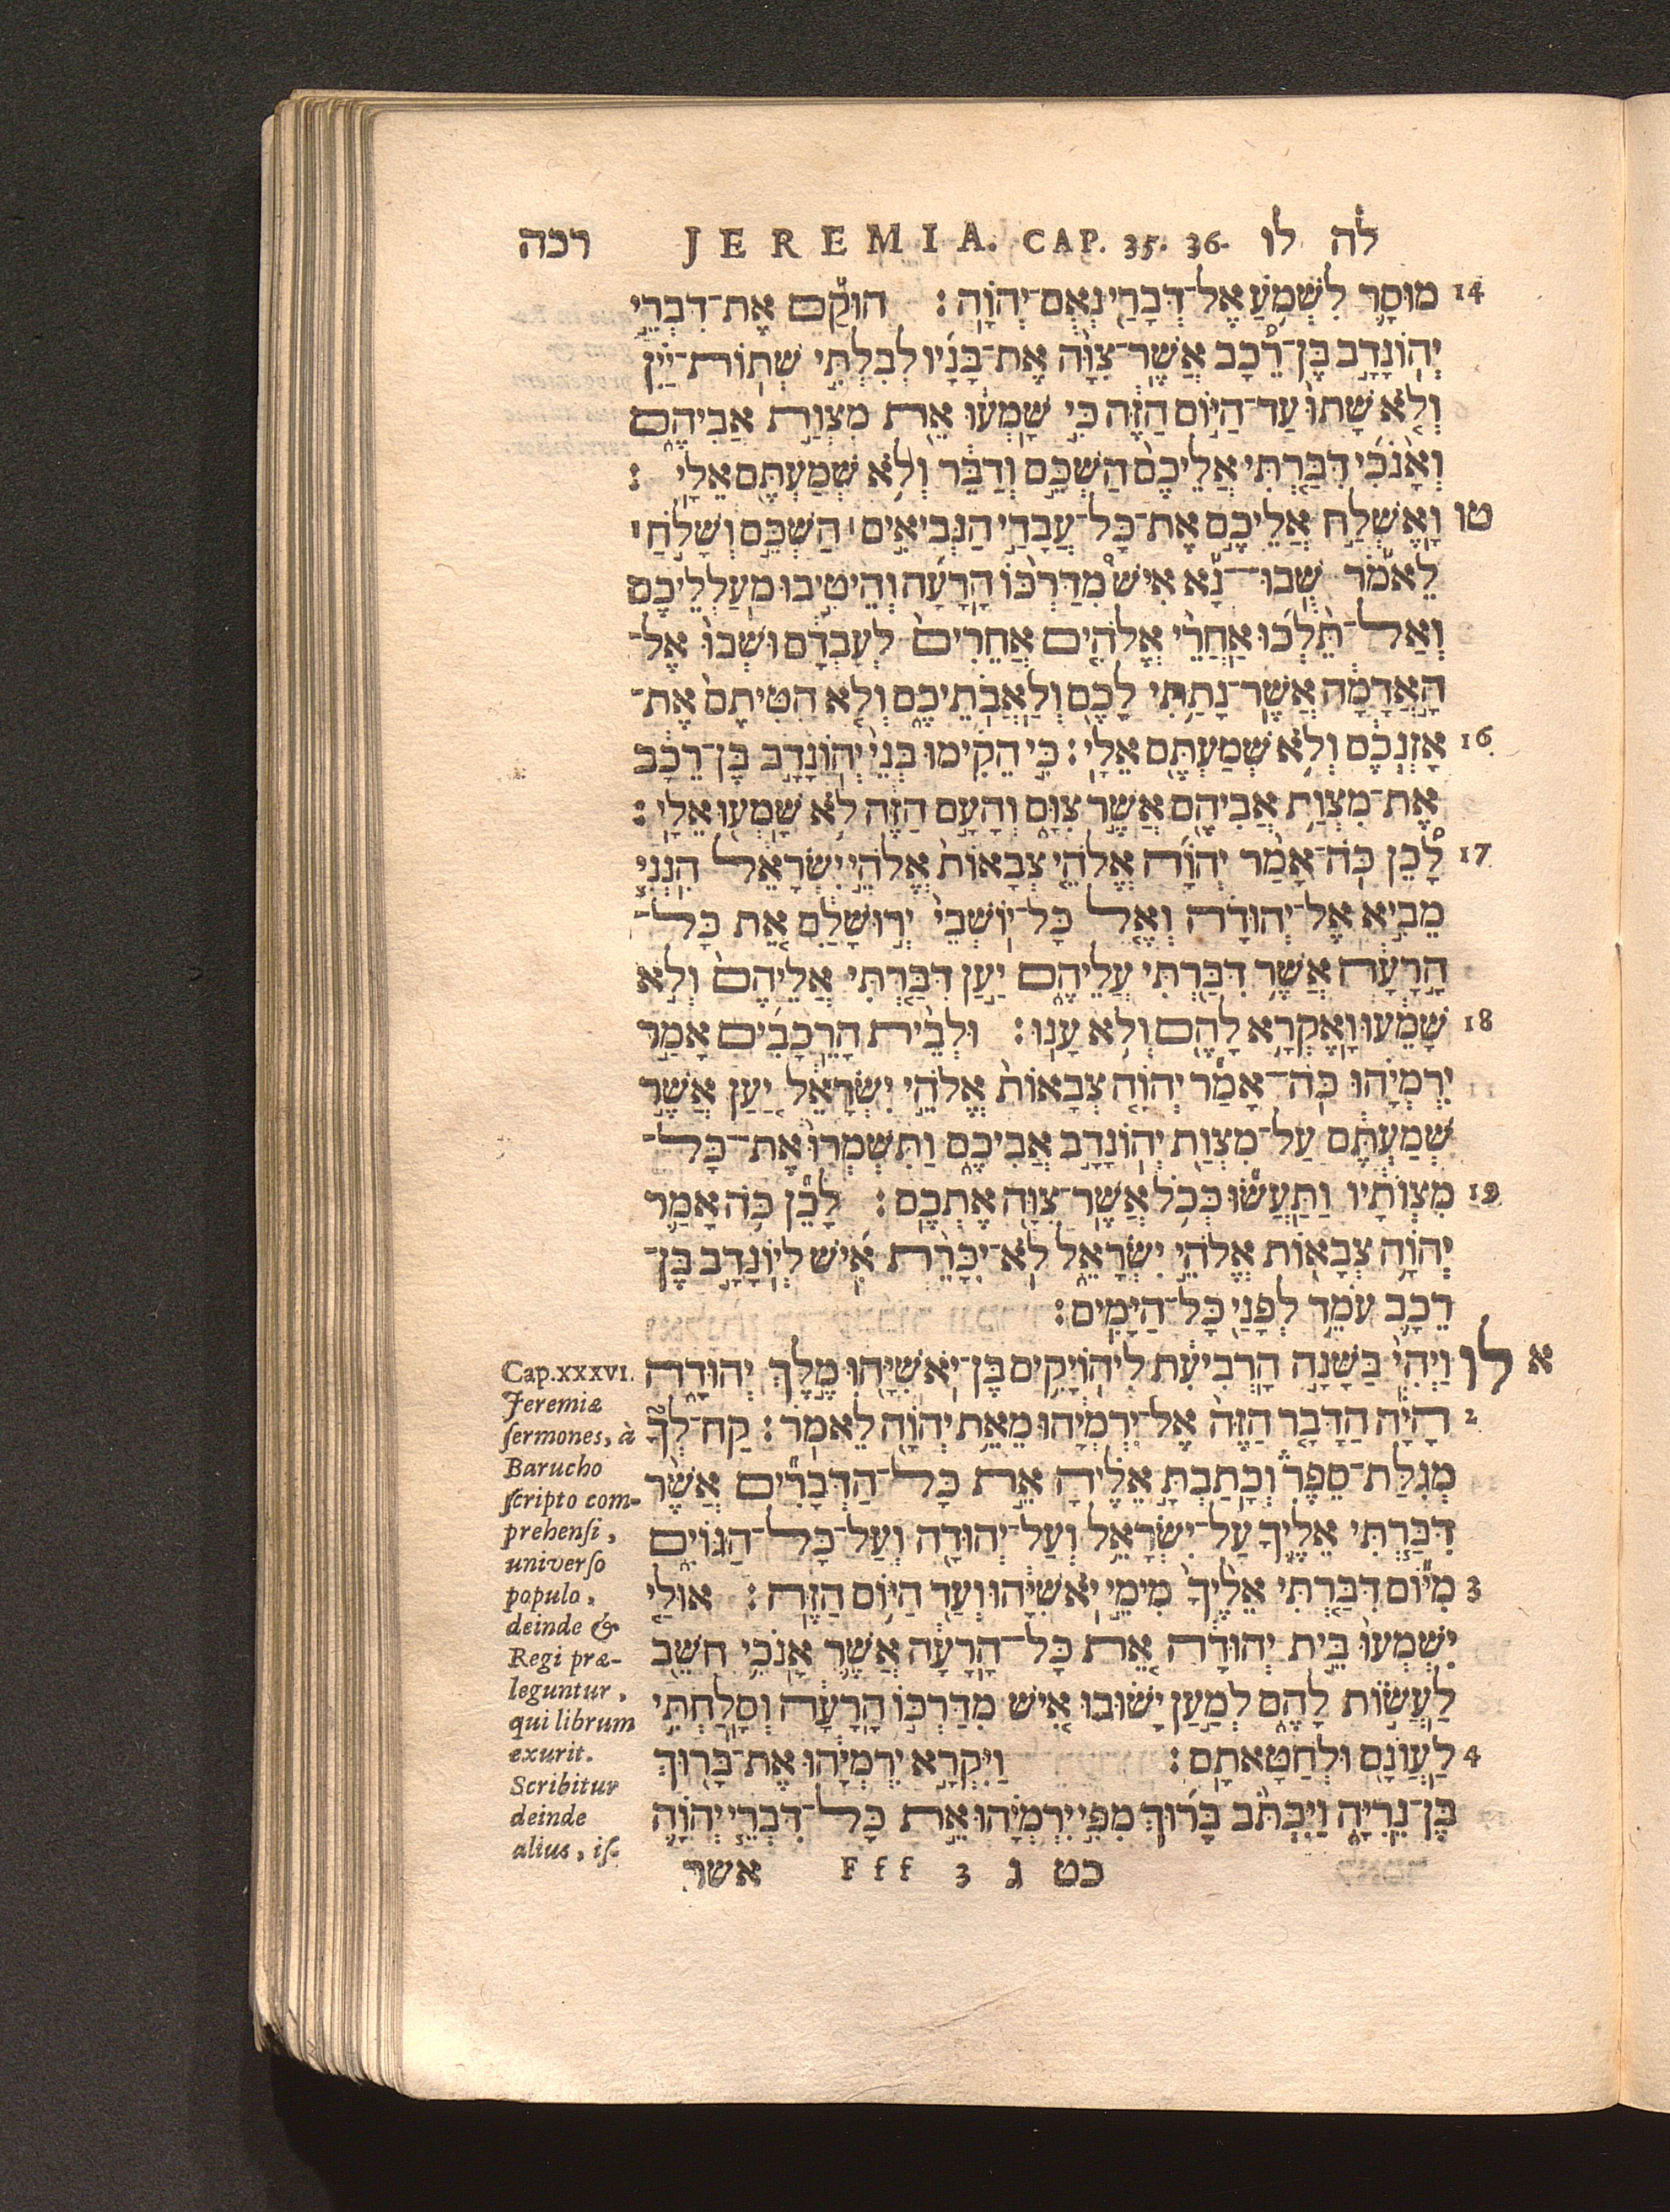 רכה JEREMIA. CAP. 35. 36. לה לו
מוּסָר לִשְׁמֹעַ אֶל־דְּבָרַי נְאֻם־יְהוָֹה׃ הוּקַם אֶת־דִּבְרֵי 14
יְהוֹנָדָב בֶּן־רֵכָב אֲשֶׁר־צִוָּה אֶת־בָּנָיו לְבִלְתִּי שְׁתוֹת־יַיִן
וְלֹא שָׁתוּ עַד־הַיּוֹם הַזֶּה כִּי שָׁמְעוּ אֵת מִצְוַת אֲבִיהֶם
וְאָנֹכִי דִּבַּרְתִּי אֲלֵיכֶם הַשְׁכֵּם וְדַבֵּר וְלֹא שְׁמַעְתֶּם אֵלָי׃
טו וָאֶשְׁלַח אֲלֵיכֶם אֶת־כָּל־עֲבָדַי הַנְּבִיאִים׀ הַשְׁכֵּם וְשָׁלֹחַ׀
לֵאמֹר שֻׁבוּ־נָא אִישׁ מִדַּרְכּוֹ הָרָעָה וְהֵיטִיבוּ מַעַלְלֵיכֶם
וְאַל־תֵּלְכוּ אַחֲרֵי אֱלֹהִים אֲחֵרִים לְעָבְדָם וּשְׁבוּ אֶל־
הָאֲדָמָה אֲשֶׁר־נָתַתִּי לָכֶם וְלַאֲבֹתֵיכֶם וְלֹא הִטִּיתֶם אֶת־
אָזְנְכֶם וְלֹא שְׁמַעְתֶּם אֵלָי׃ כִּי הֵקִימוּ בְּנֵי יְהוֹנָדָב בֶּן־רֵכָב 16
אֶת־מִצְוַת אֲבִיהֶם אֲשֶׁר צִוָּם וְהָעָם הַזֶּה לֹא שָׁמְעוּ אֵלָי׃
לָכֵן כֹּה־אָמַר יְהוָֹה אֱלֹהֵי צְבָאוֹת אֱלֹהֵי יִשְׂרָאֵל הִנְנִי 17
מֵבִיא אֶל־יְהוּדָה וְאֶל כָּל־יוֹשְׁבֵי יְרוּשָׁלִַם אֵת כָּל־
הָרָעָה אֲשֶׁר דִּבַּרְתִּי עֲלֵיהֶם יַעַן דִּבַּרְתִּי אֲלֵיהֶם וְלֹא
שָׁמֵעוּ וָאֶקְרָא לָהֶם וְלֹא עָנוּ׃ וּלְבֵית הָרֵכָבִים אָמַר 18
יִרְמְיָהוּ כֹּה־אָמַר יְהוָֹה צְבָאוֹת אֱלֹהֵי יִשְׂרָאֵל יַעַן אֲשֶׁר
שְׁמַעְתֶּם עַל־מִצְוַת יְהוֹנָדָב אֲבִיכֶם וַתִּשְׁמְרוּ אֶת־כָּל־
מִצְוֹתָיו וַתַּעֲשׂוּ כְּכֹל אֲשֶׁר־צִוָּה אֶתְכֶם׃ לָכֵן כֹּה אָמַר 19
יְהוָֹה צְבָאוֹת אֱלֹהֵי יִשְׂרָאֵל לֹא־יִכָּרֵת אִישׁ לְיוֹנָדָב בֶּן־
רֵכָב עֹמֵד לְפָנַי כָּל־הַיָּמִים׃
א לו וַיְהִי בַּשָּׁנָה הָרְבִיעִת לִיהוֹיָקִים בֶּן־יֹאשִׁיָּהוּ מֶלֶךְ יְהוּדָה
הָיָה הַדָּבָר הַזֶּה אֶל־יִרְמְיָהוּ מֵאֵת יְהוָֹה לֵאמֹר׃ קַח־לְךָ 2
מְגִלַּת־סֵפֶר וְכָתַבְתָּ אֵלֶיהָ אֵת כָּל־הַדְּבָרִים אֲשֶׁר
דִּבַּרְתִּי אֵלֶיךָ עַל־יִשְׂרָאֵל וְעַל־יְהוּדָה וְעַל־כָּל־הַגּוֹיִם
מִיּוֹם דִּבַּרְתִּי אֵלֶיךָ מִימֵי יֹאשִׁיָּהוּ וְעַד הַיּוֹם הַזֶּה׃ אוּלַי 3
יִשְׁמְעוּ בֵּית יְהוּדָה אֵת כָּל־הָרָעָה אֲשֶׁר אָנֹכִי חֹשֵׁב
לַעֲשׂוֹת לָהֶם לְמַעַן יָשׁוּבוּ אִישׁ מִדַּרְכּוֹ הָרָעָה וְסָלַחְתִּי
לַעֲוֹנָם וּלְחַטָּאתָם׃ וַיִּקְרָא יִרְמְיָהוּ אֶת־בָּרוּךְ 4
בֶּן־נֵרִיָּה וַיִּכְתֹּב בָּרוּךְ מִפִּי יִרְמְיָהוּ אֵת כָּל־דִּבְרֵי יְהוָֹה
Cap.xxxvi.
Jeremiæ
ſermones, à
Barucho
ſcripto com-
prehenſi,
univerſo
populo,
deinde &
Regi præ-
leguntur,
qui librum
exurit.
Scribitur
deinde
alius, iſ-
אשר Fff 3 כט ג